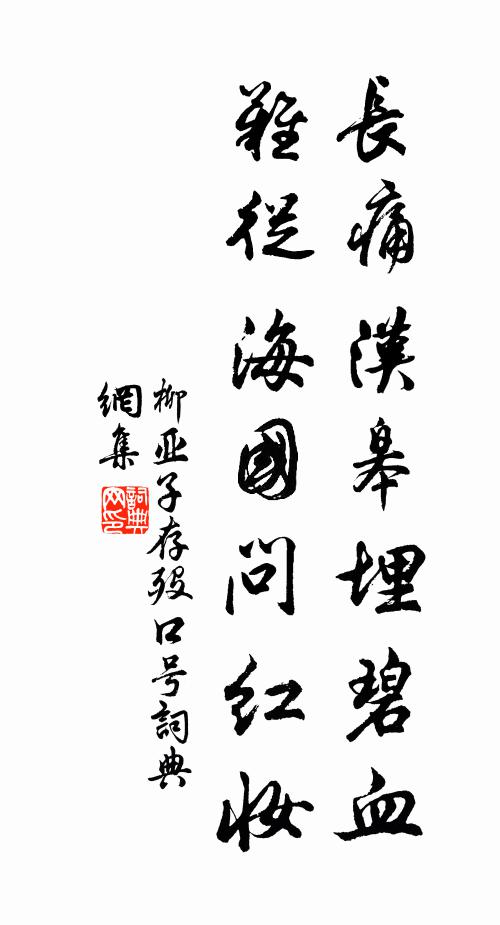 長痛漢皋埋碧血
難從海國問紅妝
柳亚子存殁口号詞典
網集
詞典
网印